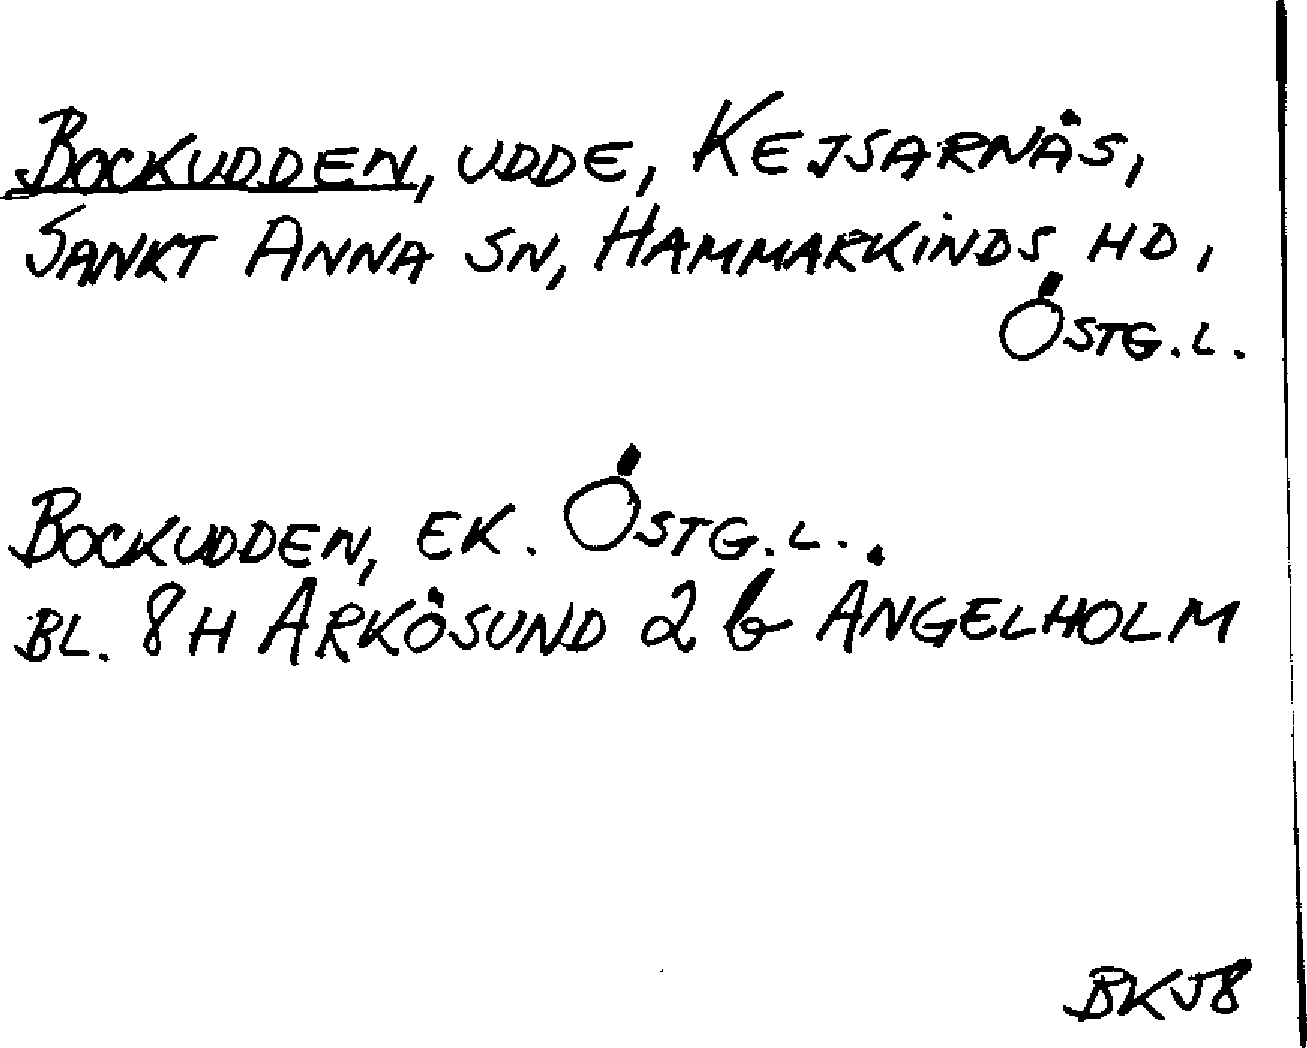 BOCKUDDEN, UDDE, KEJSARNÄS,
SANKT ANNA SN, HAMMARKINDS HD,
ÖSTG.L.
BOCKUDDEN, EK. ÖSTG.L..
BL. 8H ARKÖSUND 2 b ÄNGELHOLM
BKJ8